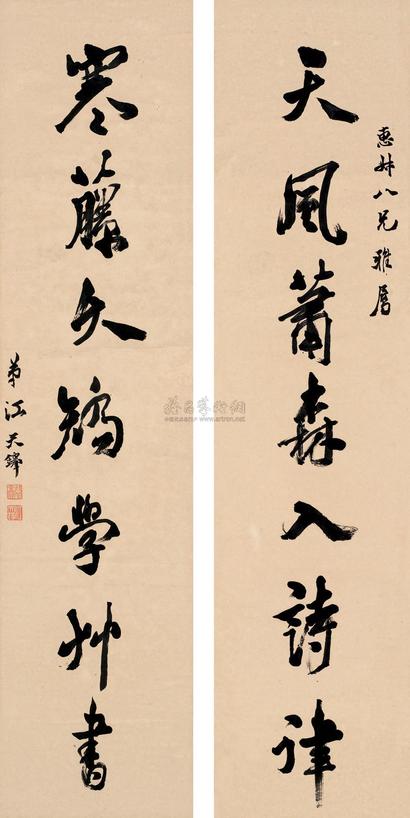 惠姝八兄雅屬
天風蕭森入詩律
寒藤夭矯學艸書
弟江天鐸
雅昌藝術網
www.artron.net